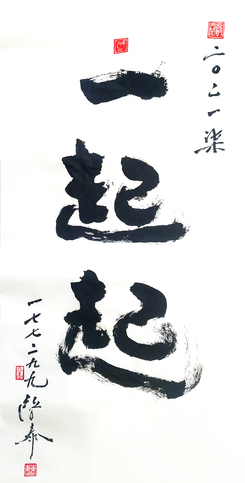 二〇二一柒
一起起
一七七二九九